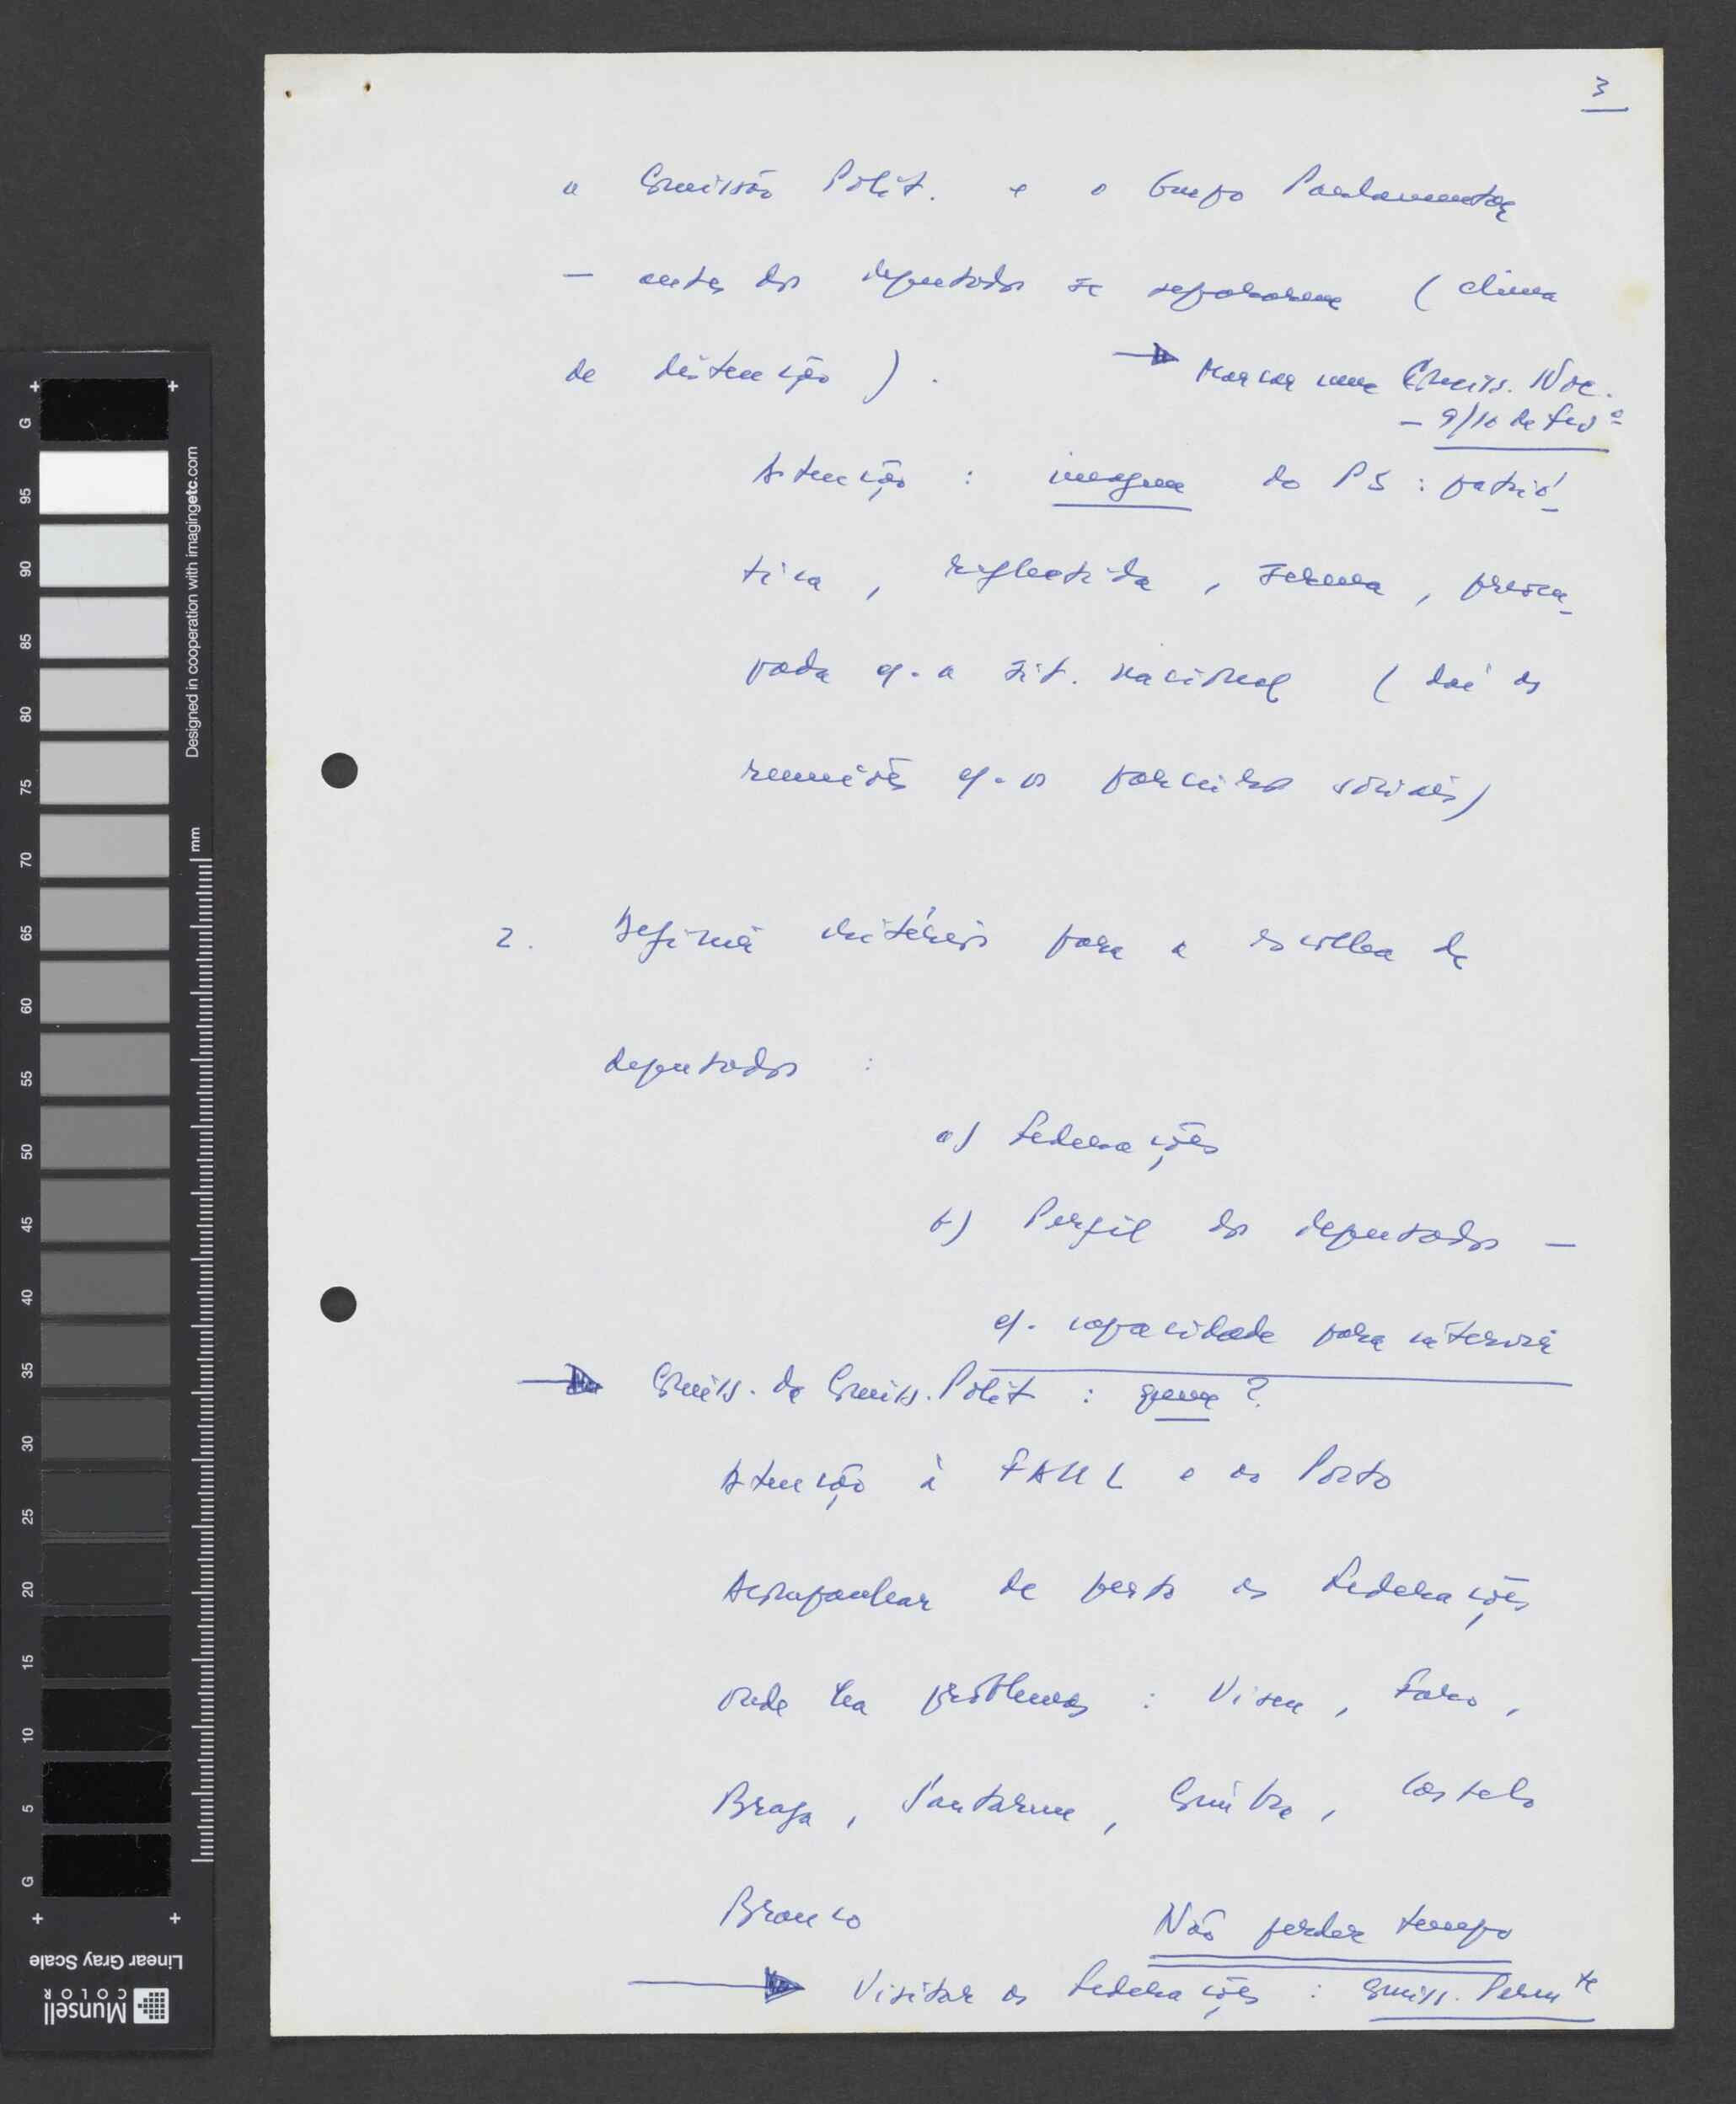 3
a Comissão Polít. e o Grupo Parlamentar
— antes dos deputados se separarem (clima
de distenção).
→ Marcar uma Comiss. Nac.
— 9/10 de Fevº
Atenção : imagem do PS : patrió-
tica, reflectida, serena, preocu-
pada c/. a sit. nacional (daí as
reuniões c/. os parceiros sociais)
2. Definir critérios para a escolha de
deputados :
a) Federações
b) Perfil dos deputados —
c/. capacidade para intervir
→ Comiss. da Comiss. Polít : quem?
Atenção à FAUL e ao Porto
Acompanhar de perto as Federações
onde ha problemas : Viseu, Faro,
Braga, Santarem, Coimbra, Castelo
Branco
Não perder tempo
→ Visitar as Federações : Comiss. Permte
G 95 90 85 80 75 70 65 60 55 50 45 40 35 30 25 20 15 10 5 G
Designed in cooperation with imagingetc.com
mm
Linear Gray Scale
Munsell
COLOR